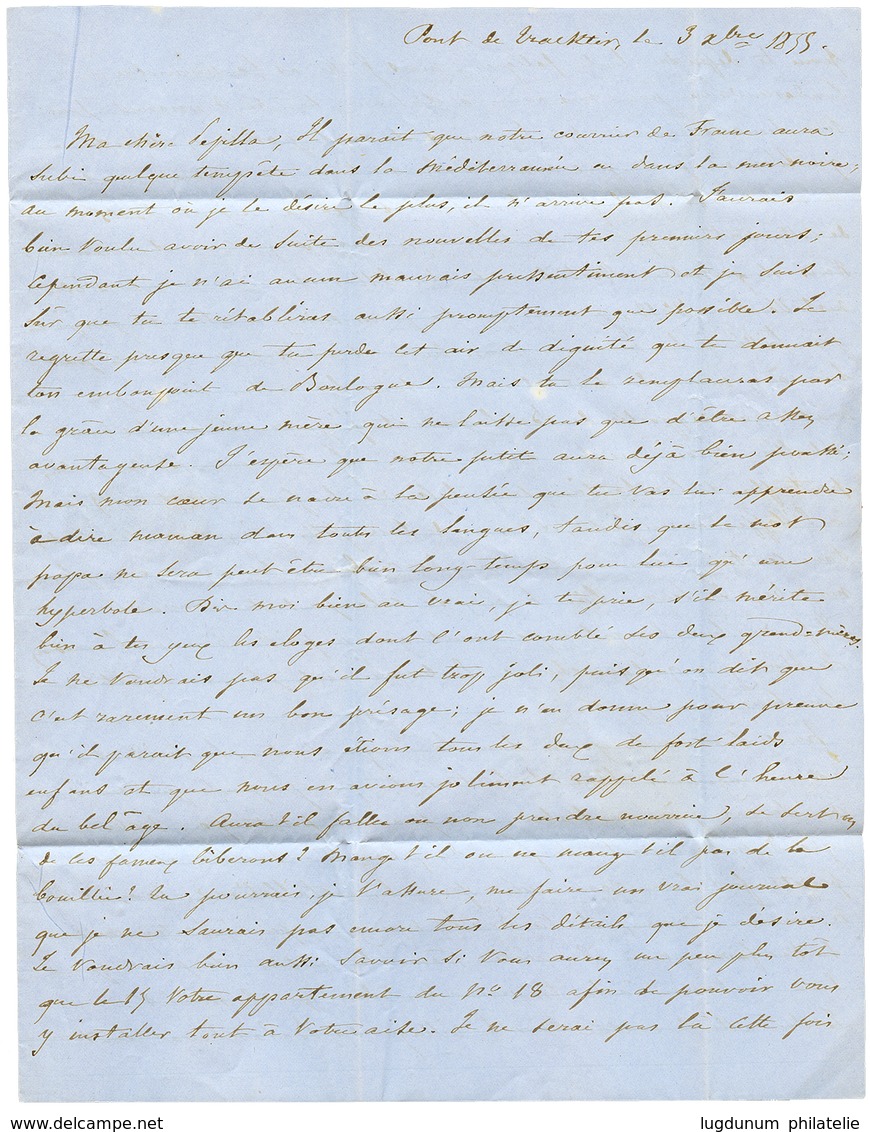 Pont de Traktir, le 3 Xbre 1855.
Ma chère Pepilla, Il parait que notre courrier de France aura
subi quelque tempête dans la Méditerrannée ou dans la mer noire;
au moment où je le désire le plus, il n'arrive pas. J'aurais
bien voulu avoir de suite des nouvelles de tes premiers jours;
cependant je n'ai aucun mauvais pressentiment et je suis
sûr que tu te rétabliras aussi promptement que possible. Je
regrette presque que tu perde cet air de dignité que te donnait
ton embonpoint de Boulogne. Mais tu le remplaceras par
la grâce d'une jeune mère qui ne laisse pas que d'être assez
avantageuse. J'espère que notre petit aura déjà bien poussé;
mais mon cœur se navre à la pensée que tu vas lui apprendre
à dire maman dans toutes les langues, tandis que le mot
papa ne sera peut être bien long-temps pour lui qu'une
hyperbole. Dis moi bien au vrai, je te prie, s'il mérite
bien à tes yeux les éloges dont l'ont comblé ses deux grand-mères.
Je ne voudrais pas qu'il fut trop joli, puisqu'on dit que
c'est rarement un bon présage; je n'en donne pour preuve
qu'il parait que nous étions tous les deux de fort laids
enfans et que nous en avions joliment rappelé à l'heure
du bel âge. Aura t'il fallu ou non prendre nourrice, se servir
de ces fameux biberons? Mange t'il ou ne mange t'il pas de la
bouillie? Tu pourrais, je t'assure, me faire un vrai journal
que je ne saurais pas encore tous les détails que je désire.
Je voudrais bien aussi savoir si vous aurez un peu plus tôt
que le 15 votre appartement du No 18 afin de pouvoir vous
y installer tout à votre aise. Je ne serai pas là cette fois
www.delcampe.net
lugdunum philatelie